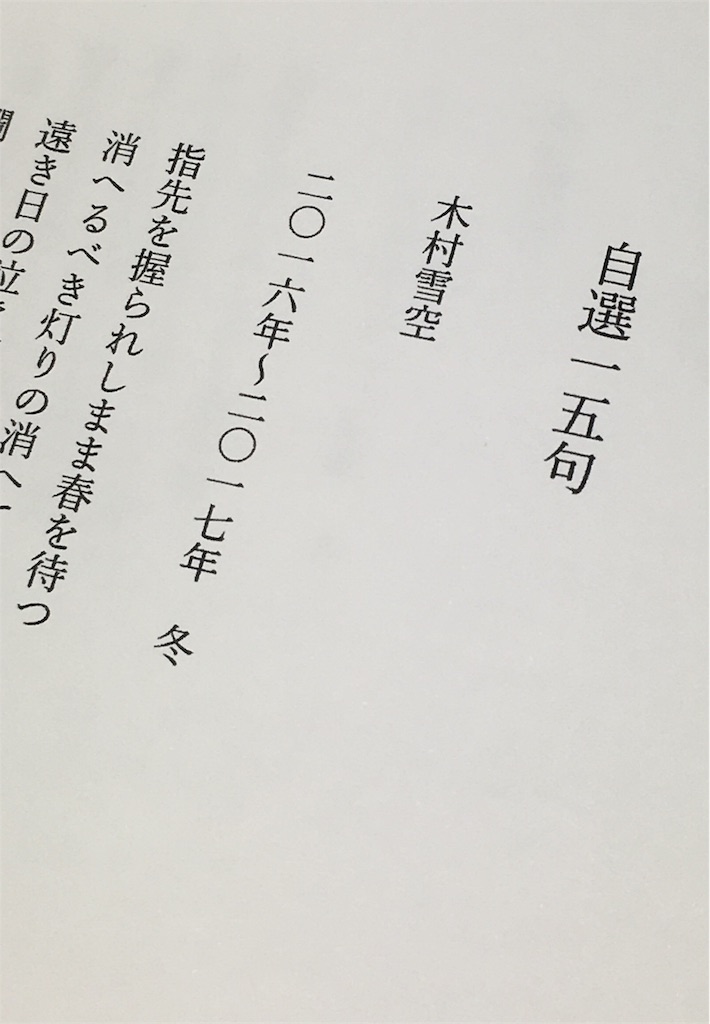 自選一五句
木村雪空
二〇一六年~二〇一七年 冬
指先を握られしまま春を待つ
消へるべき灯りの消へ
遠き日の